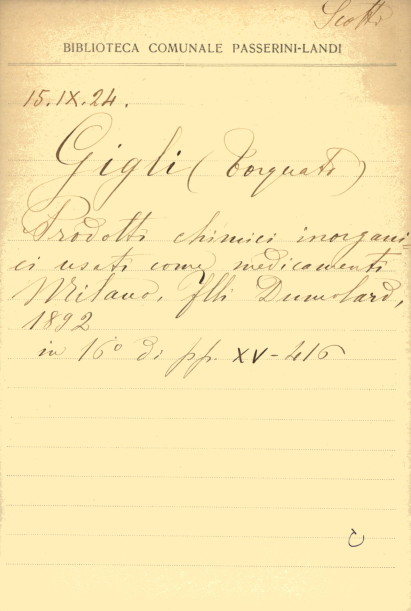 Scotti
BIBLIOTECA COMUNALE PASSERINI-LANDI
15.IX.24.
Gigli (Torquato)
Prodotti chimici inorgani=
ci usati come medicamenti
Milano, flli Dumolard,
1892
in 16º di pp. XV-416